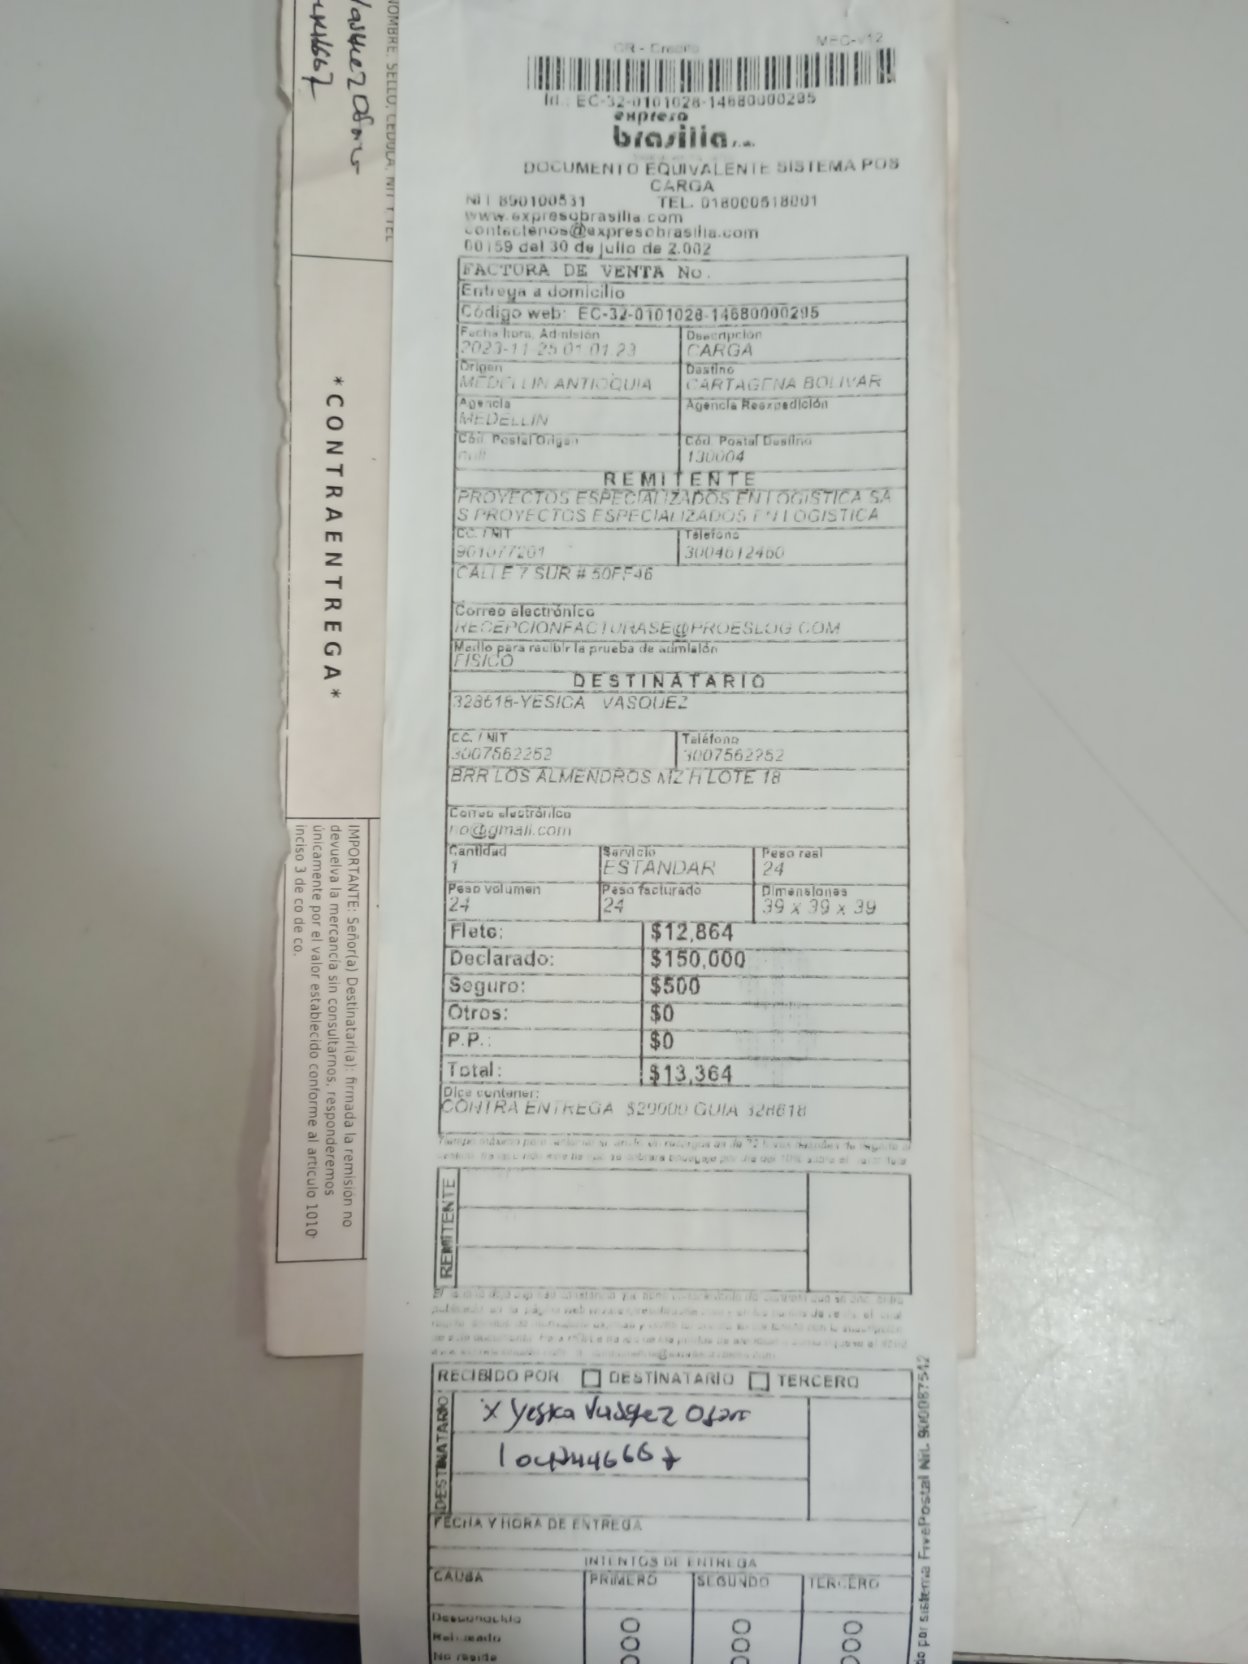 CR - Credito MEC-v12
Id.: EC-32-0101028-14680000295
expreso
brasilia s.a.
DOCUMENTO EQUIVALENTE SISTEMA POS
CARGA
NIT 890100531 TEL. 018000518001
www.expresobrasilia.com
contactenos@expresobrasilia.com
00159 del 30 de julio de 2.002
FACTURA DE VENTA No.
Entrega a domicilio
Código web: EC-32-0101028-14680000295
Fecha hora, Admisión Descripción
2023-11-25 01:01:23 CARGA
Origen Destino
MEDELLIN ANTIOQUIA CARTAGENA BOLIVAR
Agencia Agencia Reexpedición
MEDELLIN
Cód. Postal Origen Cód. Postal Destino
null 130004
REMITENTE
PROYECTOS ESPECIALIZADOS EN LOGISTICA SA
S PROYECTOS ESPECIALIZADOS EN LOGISTICA
CC. / NIT Teléfono
901077201 3004612460
CALLE 7 SUR # 50FF46
Correo electrónico
RECEPCIONFACTURASE@PROESLOG.COM
Medio para recibir la prueba de admisión
FISICO
DESTINATARIO
328618-YESICA VASQUEZ
CC. / NIT Teléfono
3007562252 3007562252
BRR LOS ALMENDROS MZ H LOTE 18
Correo electrónico
no@gmail.com
Cantidad Servicio Peso real
1 ESTANDAR 24
Peso volumen Peso facturado Dimensiones
24 24 39 x 39 x 39
Flete: $12,864
Declarado: $150,000
Seguro: $500
Otros: $0
P.P.: $0
Total: $13,364
Dice contener:
CONTRA ENTREGA $29000 GUIA 328618
REMITENTE
RECIBIDO POR DESTINATARIO TERCERO
DESTINATARIO
x Yesica Vasquez
FECHA Y HORA DE ENTREGA
INTENTOS DE ENTREGA
CAUSA PRIMERO SEGUNDO TERCERO
Desconocido
Rehusado
No reside
do por sistema FivePostal Nit. 900087542
NOMBRE, SELLO, CEDULA, NIT Y TEL
*CONTRAENTREGA*
IMPORTANTE: Señor(a) Destinatari(a): firmada la remisión no
devuelva la mercancía sin consultarnos, responderemos
únicamente por el valor establecido conforme al artículo 1010
inciso 3 de co de co.